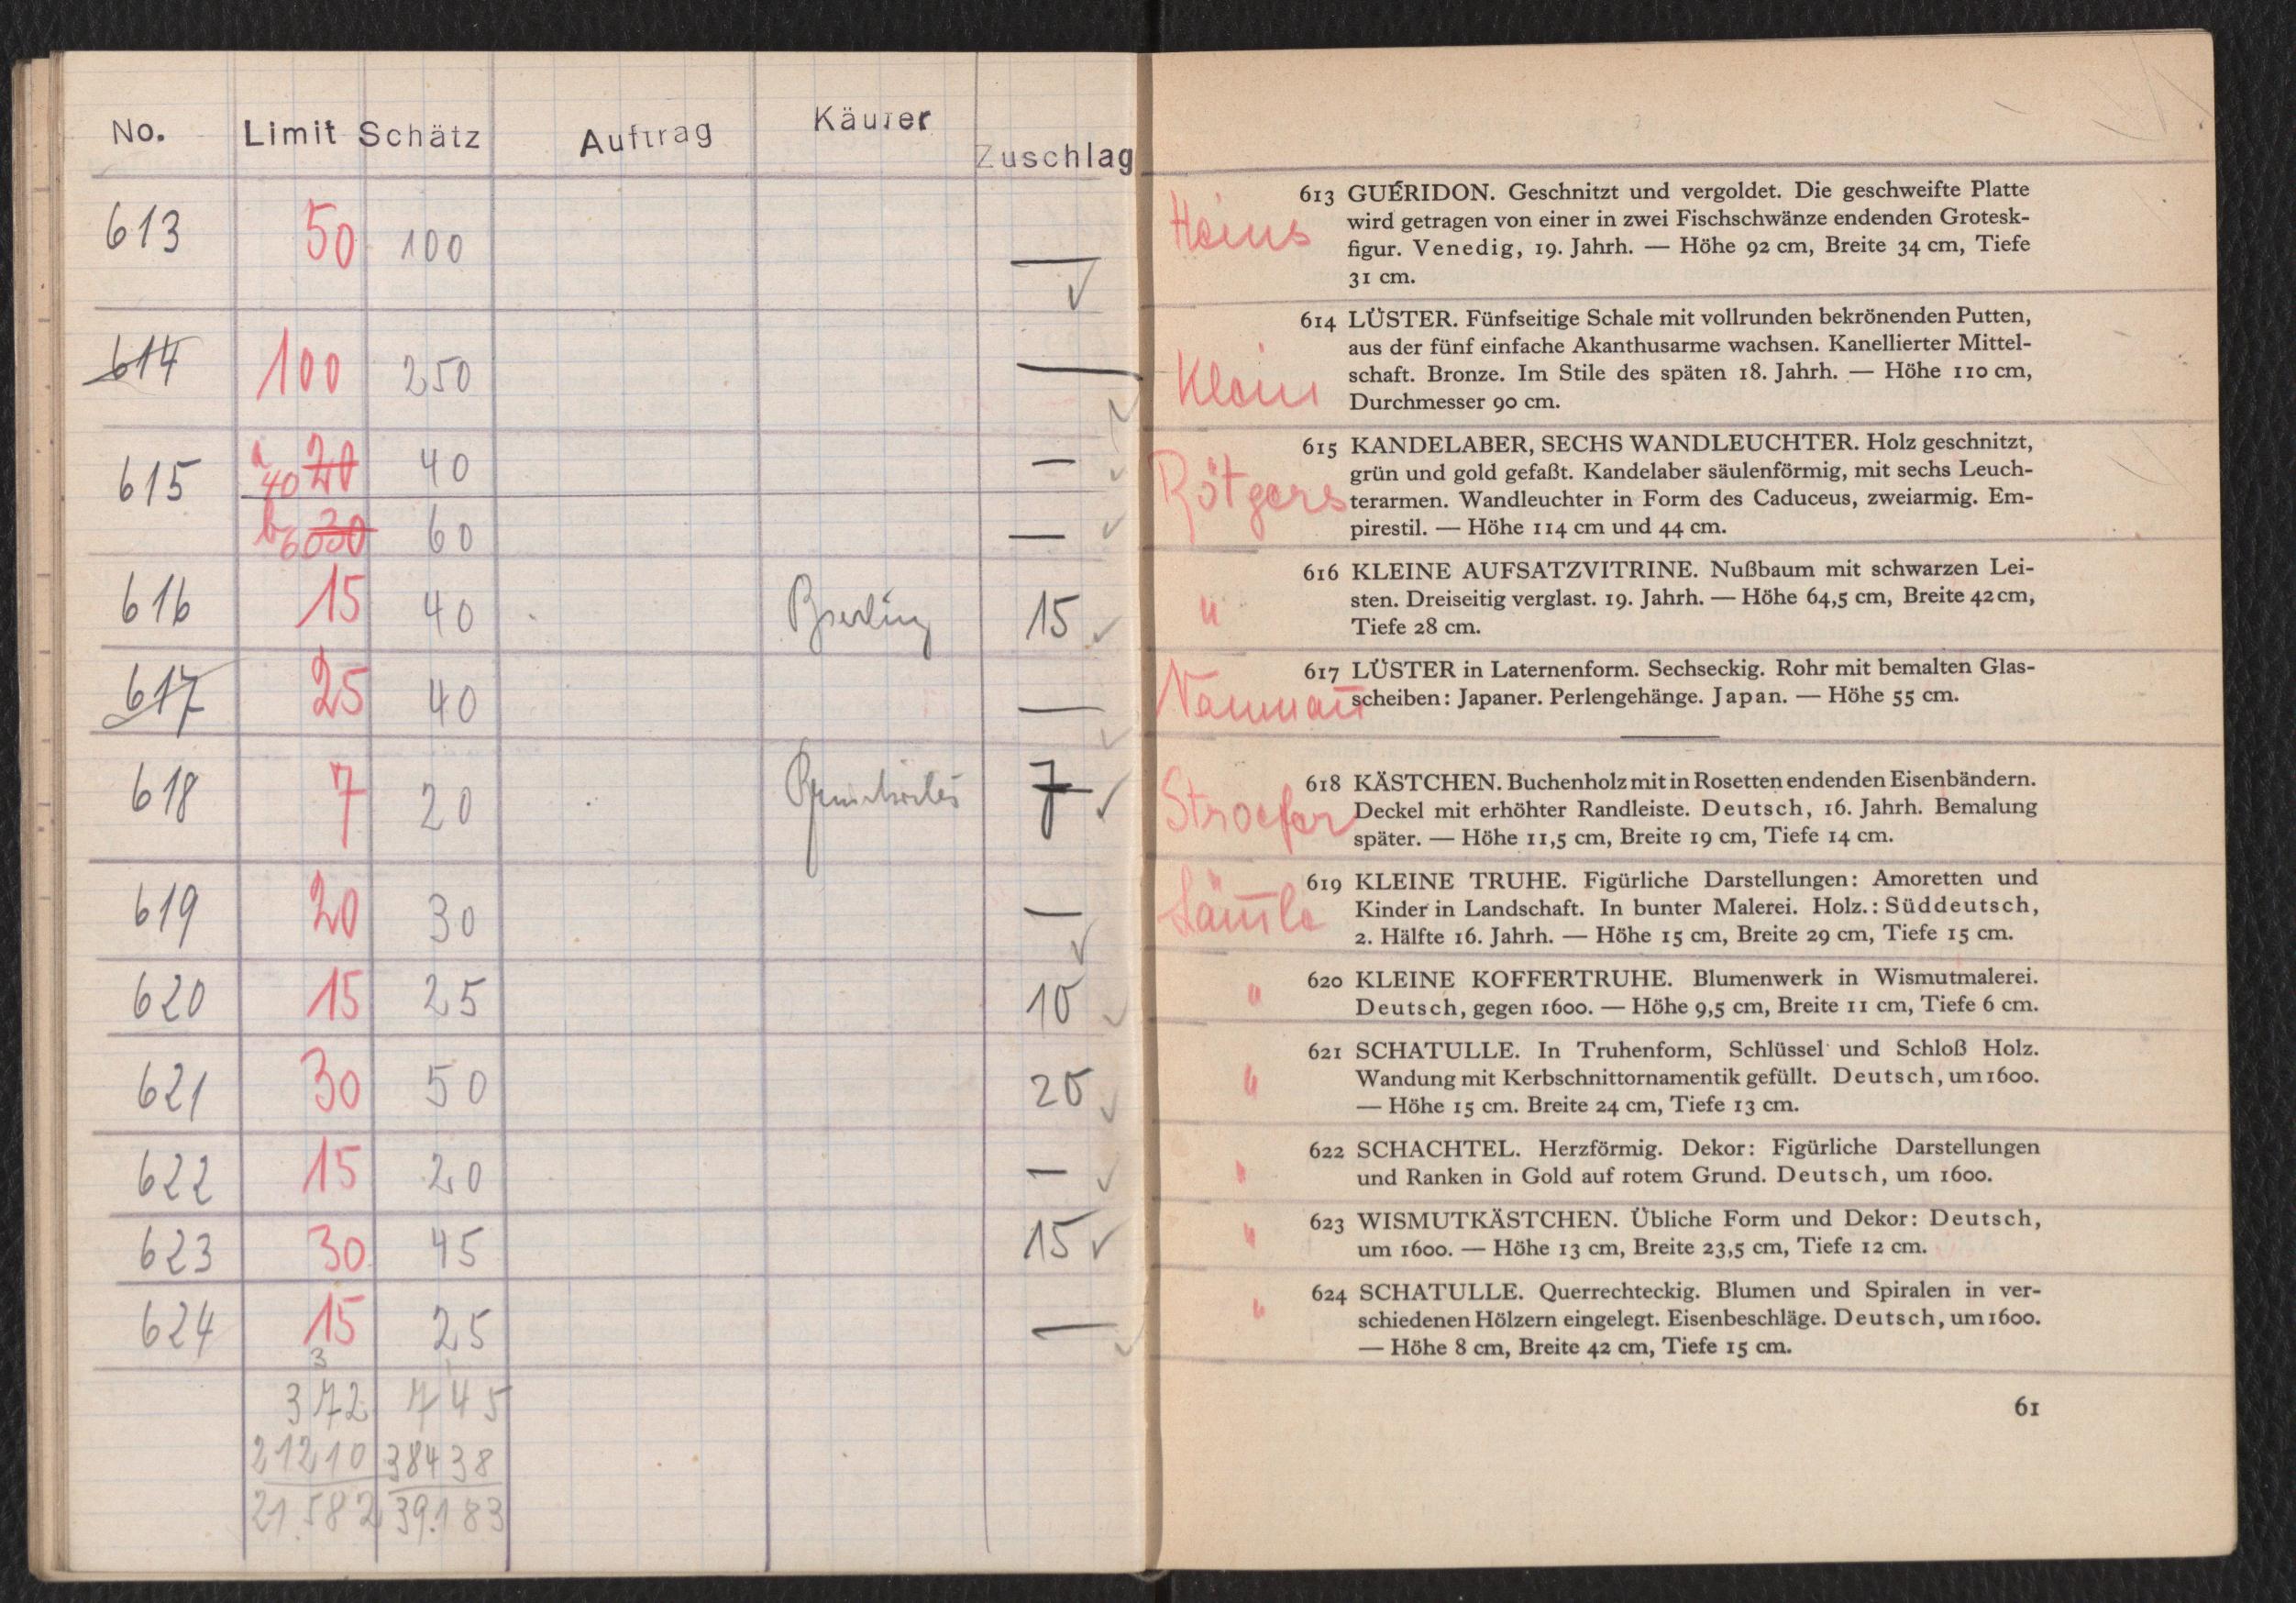 No. Limit Schätz Auftrag Käufer Zuschlag
613 50 100 —
614 100 250 —
615 a 40 20 40 —
b 60 30 60 —
616 15 40 15
617 25 40 —
618 7 20 7
619 20 30 —
620 15 25 10
621 30 50 20
622 15 20 —
623 30 45 15
624 15 25 —
3
372 745
21210 38438
21.582 39.183
Heins
613 GUÉRIDON. Geschnitzt und vergoldet. Die geschweifte Platte
wird getragen von einer in zwei Fischschwänze endenden Grotesk-
figur. Venedig, 19. Jahrh. — Höhe 92 cm, Breite 34 cm, Tiefe
31 cm.
Klein
614 LÜSTER. Fünfseitige Schale mit vollrunden bekrönenden Putten,
aus der fünf einfache Akanthusarme wachsen. Kanellierter Mittel-
schaft. Bronze. Im Stile des späten 18. Jahrh. — Höhe 110 cm,
Durchmesser 90 cm.
Rötgers
615 KANDELABER, SECHS WANDLEUCHTER. Holz geschnitzt,
grün und gold gefaßt. Kandelaber säulenförmig, mit sechs Leuch-
terarmen. Wandleuchter in Form des Caduceus, zweiarmig. Em-
pirestil. — Höhe 114 cm und 44 cm.
"
616 KLEINE AUFSATZVITRINE. Nußbaum mit schwarzen Lei-
sten. Dreiseitig verglast. 19. Jahrh. — Höhe 64,5 cm, Breite 42 cm,
Tiefe 28 cm.
617 LÜSTER in Laternenform. Sechseckig. Rohr mit bemalten Glas-
scheiben: Japaner. Perlengehänge. Japan. — Höhe 55 cm.
Stroefer
618 KÄSTCHEN. Buchenholz mit in Rosetten endenden Eisenbändern.
Deckel mit erhöhter Randleiste. Deutsch, 16. Jahrh. Bemalung
später. — Höhe 11,5 cm, Breite 19 cm, Tiefe 14 cm.
619 KLEINE TRUHE. Figürliche Darstellungen: Amoretten und
Kinder in Landschaft. In bunter Malerei. Holz.: Süddeutsch,
2. Hälfte 16. Jahrh. — Höhe 15 cm, Breite 29 cm, Tiefe 15 cm.
"
620 KLEINE KOFFERTRUHE. Blumenwerk in Wismutmalerei.
Deutsch, gegen 1600. — Höhe 9,5 cm, Breite 11 cm, Tiefe 6 cm.
"
621 SCHATULLE. In Truhenform, Schlüssel und Schloß Holz.
Wandung mit Kerbschnittornamentik gefüllt. Deutsch, um 1600.
— Höhe 15 cm. Breite 24 cm, Tiefe 13 cm.
"
622 SCHACHTEL. Herzförmig. Dekor: Figürliche Darstellungen
und Ranken in Gold auf rotem Grund. Deutsch, um 1600.
"
623 WISMUTKÄSTCHEN. Übliche Form und Dekor: Deutsch,
um 1600. — Höhe 13 cm, Breite 23,5 cm, Tiefe 12 cm.
"
624 SCHATULLE. Querrechteckig. Blumen und Spiralen in ver-
schiedenen Hölzern eingelegt. Eisenbeschläge. Deutsch, um 1600.
— Höhe 8 cm, Breite 42 cm, Tiefe 15 cm.
61